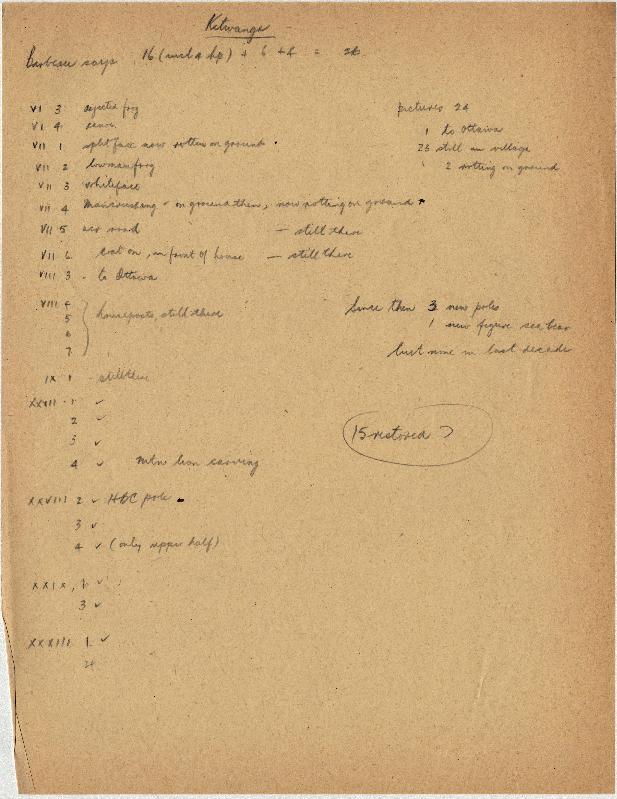 Kitwanga
Barbeau says 16 (incl 4 hp) + 6 + 4 = 26
VI 3 ejected frog
VI 4
VII 1 split face now rotten on ground
VII 2
VII 3 whiteface
VII 4 on ground then, now rotting on ground
VII 5 road — still there
VII 6 on, in front of house — still there
VIII 3 - to Ottawa
VIII 4
5 houseposts, still there
6
7
IX 1 - still there
XXVII - 1 ✓
2 ✓
3 ✓
4 ✓ Mtn lion carving
XXVIII 2 ✓ HBC pole
3 ✓
4 ✓ (only upper half)
XXIX, 1 ✓
3 ✓
XXXIII 1 ✓
2
pictures 24
1 to Ottawa
23 still in village
2 rotting on ground
Since then 3 new poles
1 new figure sea bear
but none in last decade
15 restored ?